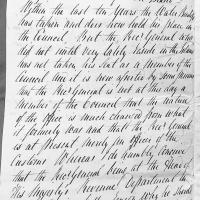 Within the last ten Years the
has taken and does now hold his place in
the Council. But the Recr General
did not until very lately reside in the
was not taken his seat as a member of the
Council and it is now asserted by some persons
that the Recr General is not at this day a
member of the Council that the nature
of the office is much changed from what
it formerly was and that the Recr General
is at present merely an officer of the
Customs Whereas I do humbly conceive
that the Recr General being at the Head of
His Majesty's Revenue Department in
he should